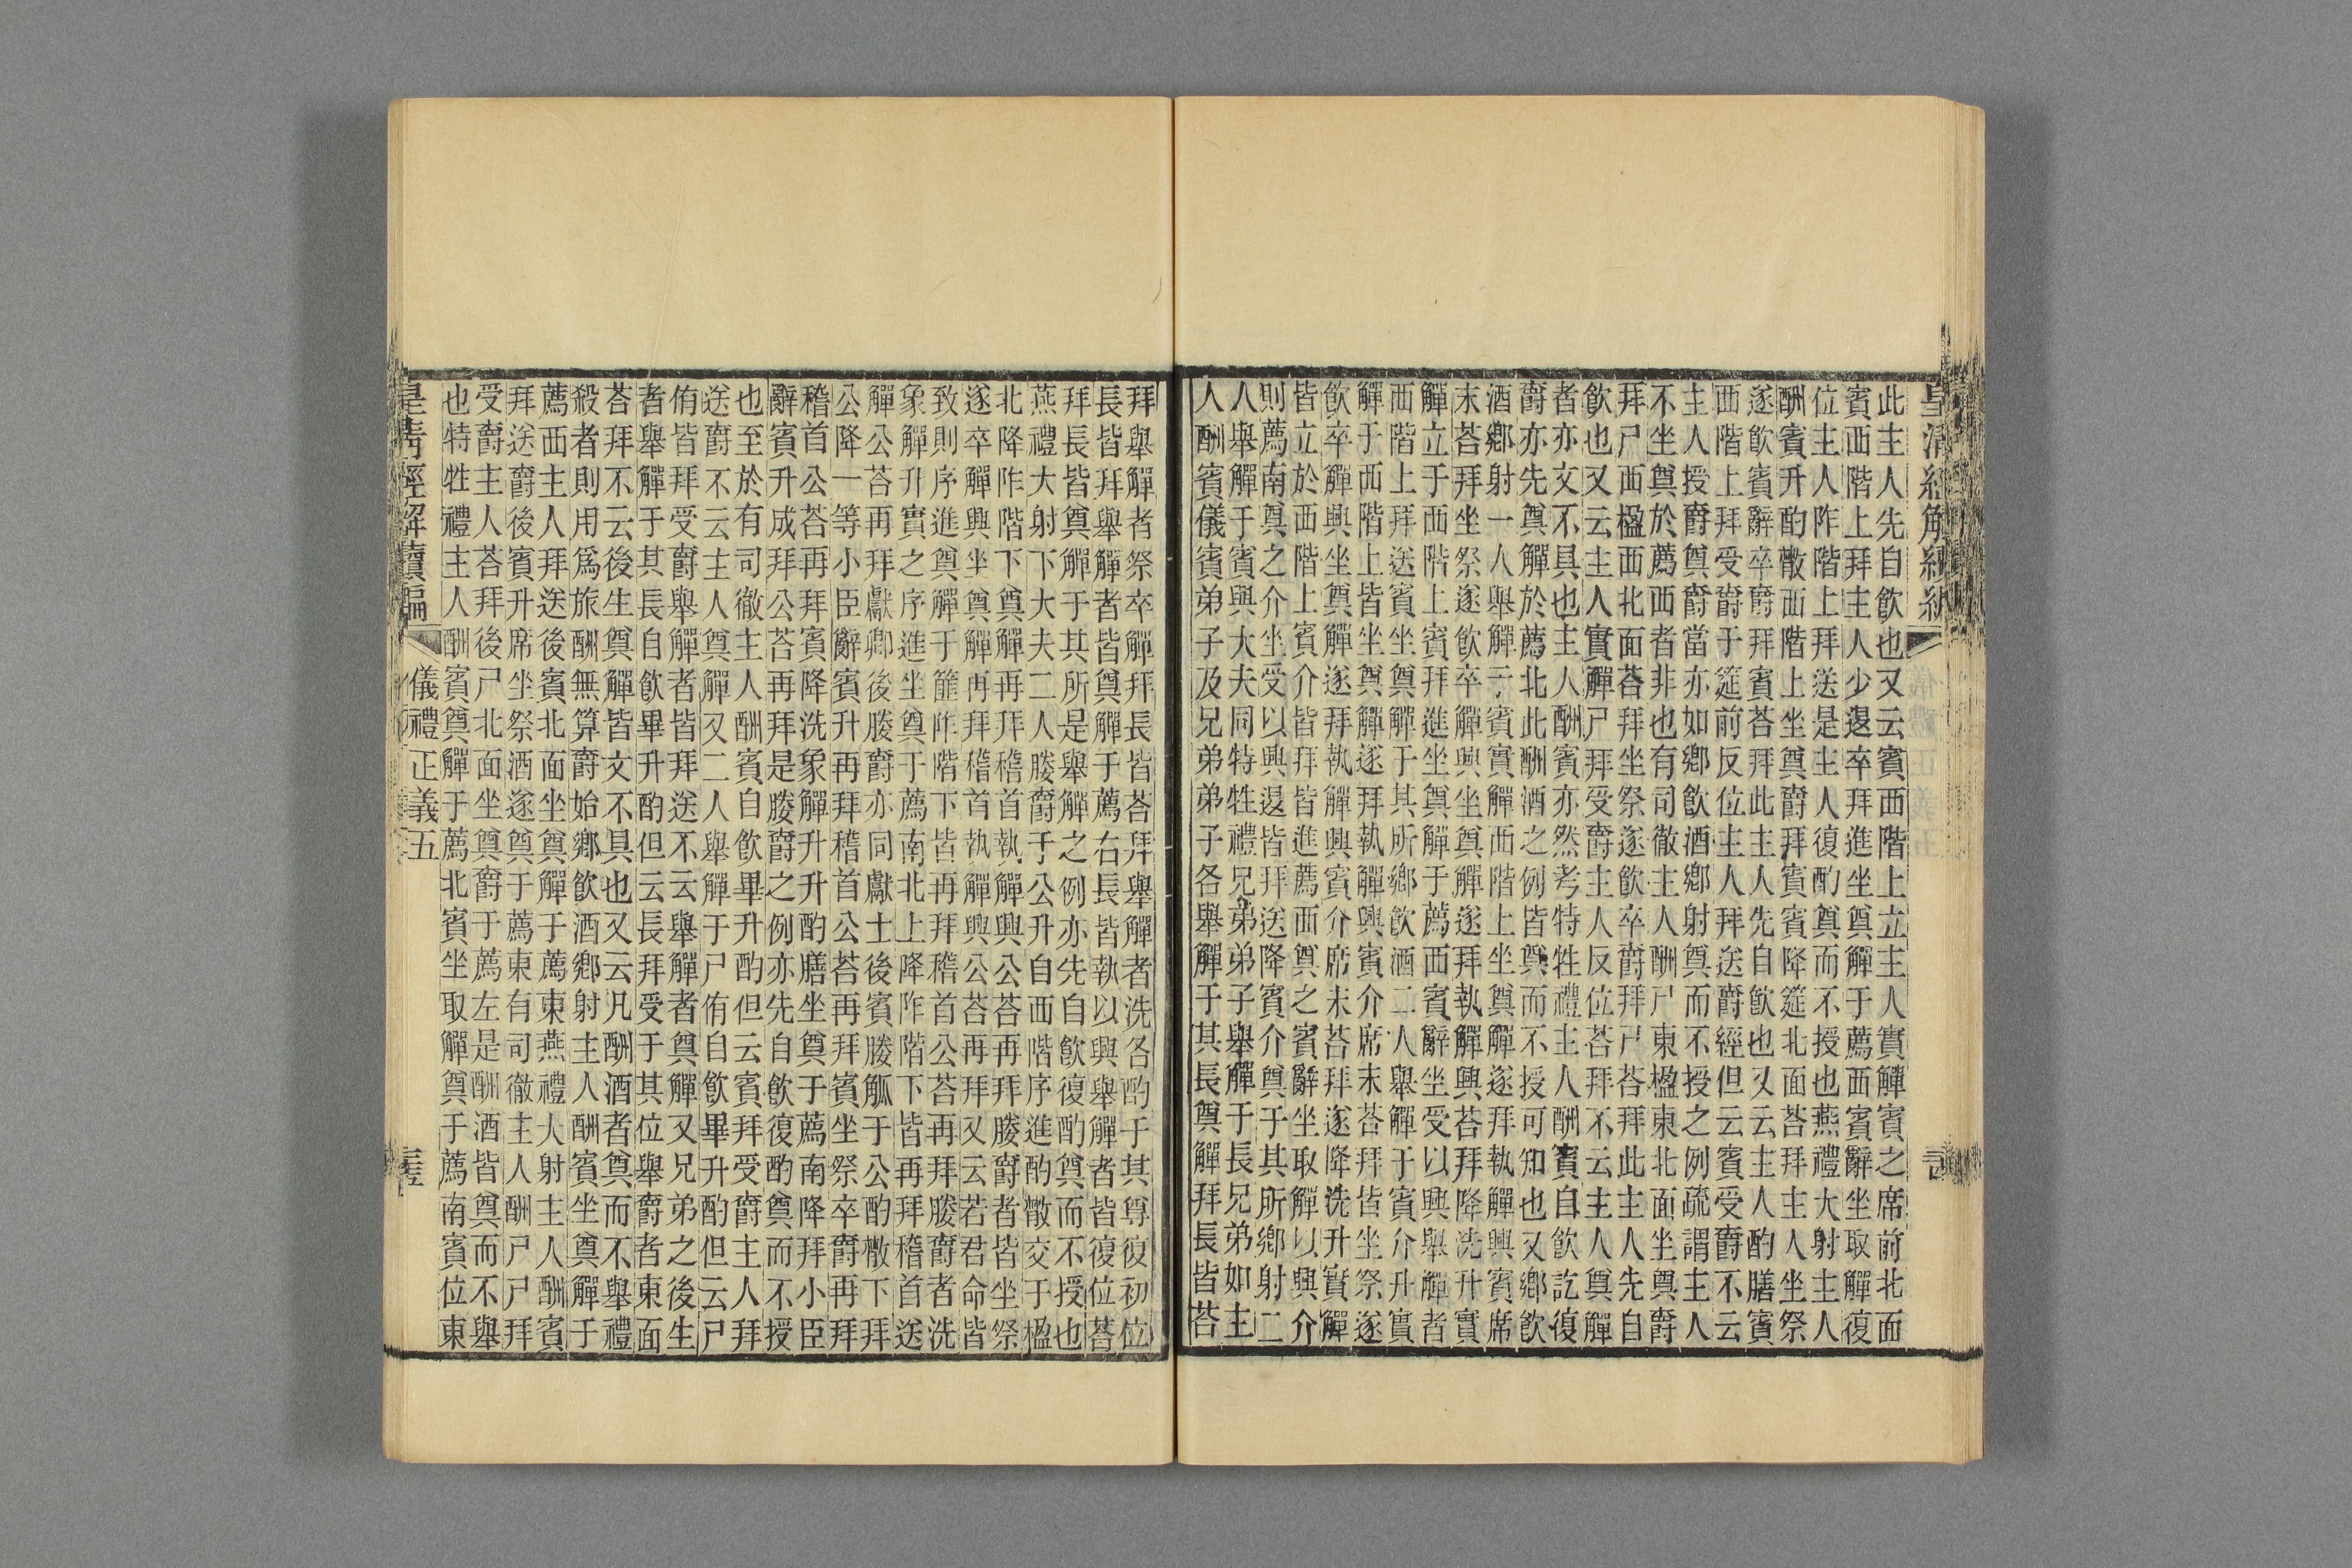 皇清經解續編
此主人先自飲也又云賓西階上立主人實觶賓之席前北面
賓西階上拜主人少退卒拜進坐奠觶于薦西賓辭坐取觶復
位主人阼階上拜送是主人復酌奠而不授也燕禮大射主人
酬賓升酌散西階上坐奠爵拜賓賓降筵北面荅拜主人坐祭
遂飲賓辭卒爵拜賓荅拜此主人先自飲也又云主人酌膳賓
西階上拜受爵于筵前反位主人拜送爵經但云賓受爵不云
主人授爵奠爵當亦如鄉飲酒鄉射奠而不授之例疏謂主人
不坐奠於薦西者非也有司徹主人酬尸東楹東北面坐奠爵
拜尸西楹西北面荅拜坐祭遂飲卒爵拜尸荅拜此主人先自
飲也又云主人實觶尸拜受爵主人反位荅拜不云主人奠觶
者亦文不具也主人酬賓亦然考特牲禮主人酬賓自飲訖復
爵亦先奠觶於薦北此酬酒之例皆奠而不授可知也又鄉飲
酒鄉射一人舉觶于賓實觶西階上坐奠觶遂拜執觶興賓席
末荅拜坐祭遂飲卒觶興坐奠觶遂拜執觶興荅拜降洗升實
觶立于西階上賓拜進坐奠觶于薦西賓辭坐受以興舉觶者
西階上拜送賓坐奠觶于其所鄉飲酒二人舉觶于賓介升實
觶于西階上皆坐奠觶遂拜執觶興賓介席末荅拜皆坐祭遂
飲卒觶興坐奠觶遂拜執觶興賓介席末荅拜遂降洗升實觶
皆立於西階上賓介皆拜皆進薦西奠之賓辭坐取觶以興介
則薦南奠之介坐受以興退皆拜送降賓介奠于其所鄉射二
人舉觶于賓與大夫同特牲禮兄弟弟子舉觶于長兄弟如主
人酬賓儀賓弟子及兄弟弟子各舉觶于其長奠觶拜長皆荅
拜舉觶者祭卒觶拜長皆荅拜舉觶者洗各酌于其尊復初位
長皆拜舉觶者皆奠觶于薦右長皆執以興舉觶者皆復位荅
拜長皆奠觶于其所是舉觶之例亦先自飲復酌奠而不授也
燕禮大射下大夫二人媵爵于公升自西階序進酌散交于楹
北降阼階下奠觶再拜稽首執觶興公荅再拜媵爵者皆坐祭
遂卒觶興坐奠觶再拜稽首執觶興公荅再拜又云若君命皆
致則序進奠觶于篚阼階下皆再拜稽首公荅再拜媵爵者洗
象觶升實之序進坐奠于薦南北上降阼階下皆再拜稽首送
觶公荅再拜獻卿後媵爵亦同獻士後賓媵觚于公酌散下拜
公降一等小臣辭賓升再拜稽首公荅再拜賓坐祭卒爵再拜
稽首公荅再拜賓降洗象觶升升酌膳坐奠于薦南降拜小臣
辭賓升成拜公荅再拜是媵爵之例亦先自飲復酌奠而不授
也至於有司徹主人酬賓自飲畢升酌但云賓拜受爵主人拜
送爵不云主人奠觶又二人舉觶于尸侑自飲畢升酌但云尸
侑皆拜受爵舉觶者皆拜送不云舉觶者奠觶又兄弟之後生
者舉觶于其長自飲畢升酌但云長拜受于其位舉爵者東面
荅拜不云後生奠觶皆文不具也又云凡酬酒者奠而不舉禮
殺者則用爲旅酬無算爵始鄉飲酒鄉射主人酬賓坐奠觶于
薦西主人拜送後賓北面坐奠觶于薦東燕禮大射主人酬賓
拜送爵後賓升席坐祭酒遂奠于薦東有司徹主人酬尸尸拜
受爵主人荅拜後尸北面坐奠爵于薦左是酬酒皆奠而不舉
也特牲禮主人酬賓奠觶于薦北賓坐取觶奠于薦南賓位東
皇清經解續編 儀禮正義五